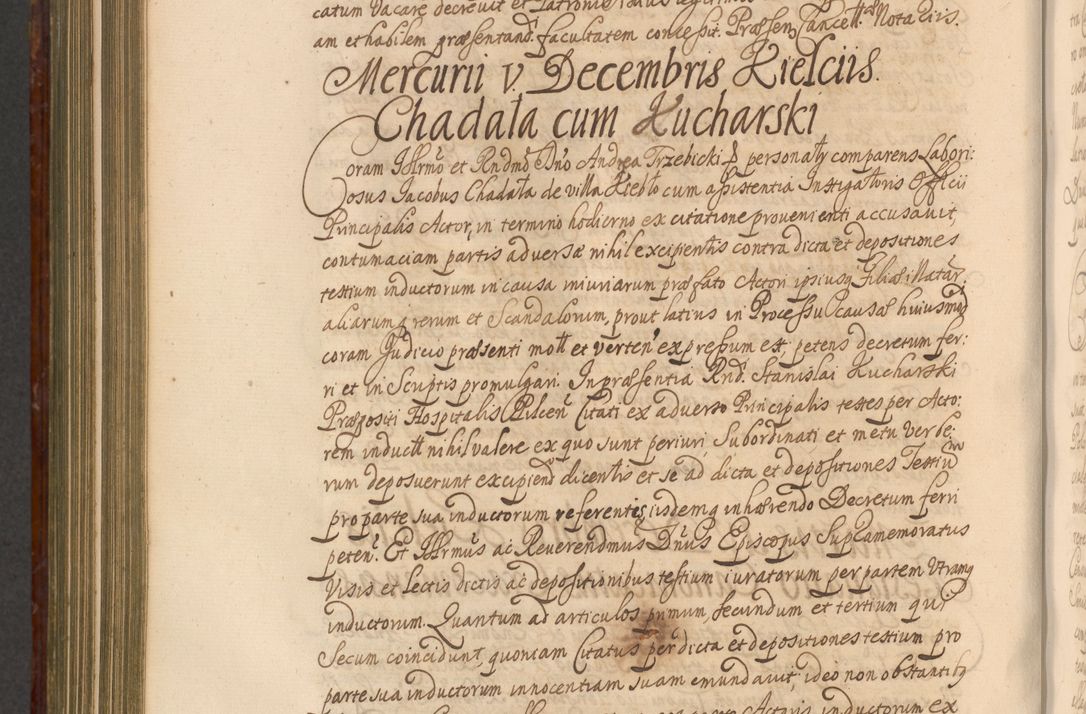 catum Vacare decrevit et Patronis
am et habilem præsentand. facultatem concessit. Præsen. Cancell. Notariis.
Mercurii v. Decembris Kielciis.
Chadała cum Kucharski
Coram Illrmo et Rndmo Dno Andrea Trzebicki personalr comparens Labori:
osus Jacobus Chadała de villa cum assistentia Instigatoris Officii
Principalis Actor, in termino hodierno ex citatione provenienti accusavit,
contumaciam partis adversæ nihil excipientis contra dicta et depositiones
testium inductorum in causa iniuriarum præfato Actori ipsiusq Filiæ illatar.
aliarumq rerum et Scandalorum, prout latius in Processu causæ huiusmod
coram Judicio præsenti mott et verten. expressum est, petens decretum fer:
ri et in Scriptis promulgari. In præsentia Rnd. Stanislai Kucharski
Præpositi Hospitalis Pilcen. Citati ex adverso Principalis testes per Acto:
rem induct. nihil valere ex quo sunt periuri, Subordinati et metu verbe:
rum deposuerunt excipiend. dicentis et se ad dicta et depositiones Testium
pro parte sua inductorum referentis, iisdemq inhærendo Decretum ferri
peten. Et Illrmus ac Reverendmus Dnus Episcopus Supramemoratus
Visis et Lectis dictis ac depositionibus testium iuratorum per partem Utramq
inductorum. Quantum ad articulos primum, secundum et tertium qui
Secum coincidunt, quoniam Citatus per dicta et depositiones testium pro
parte sua inductorum innocentiam suam emundavit, ideo non obstantib9
Actoris inductorum ex